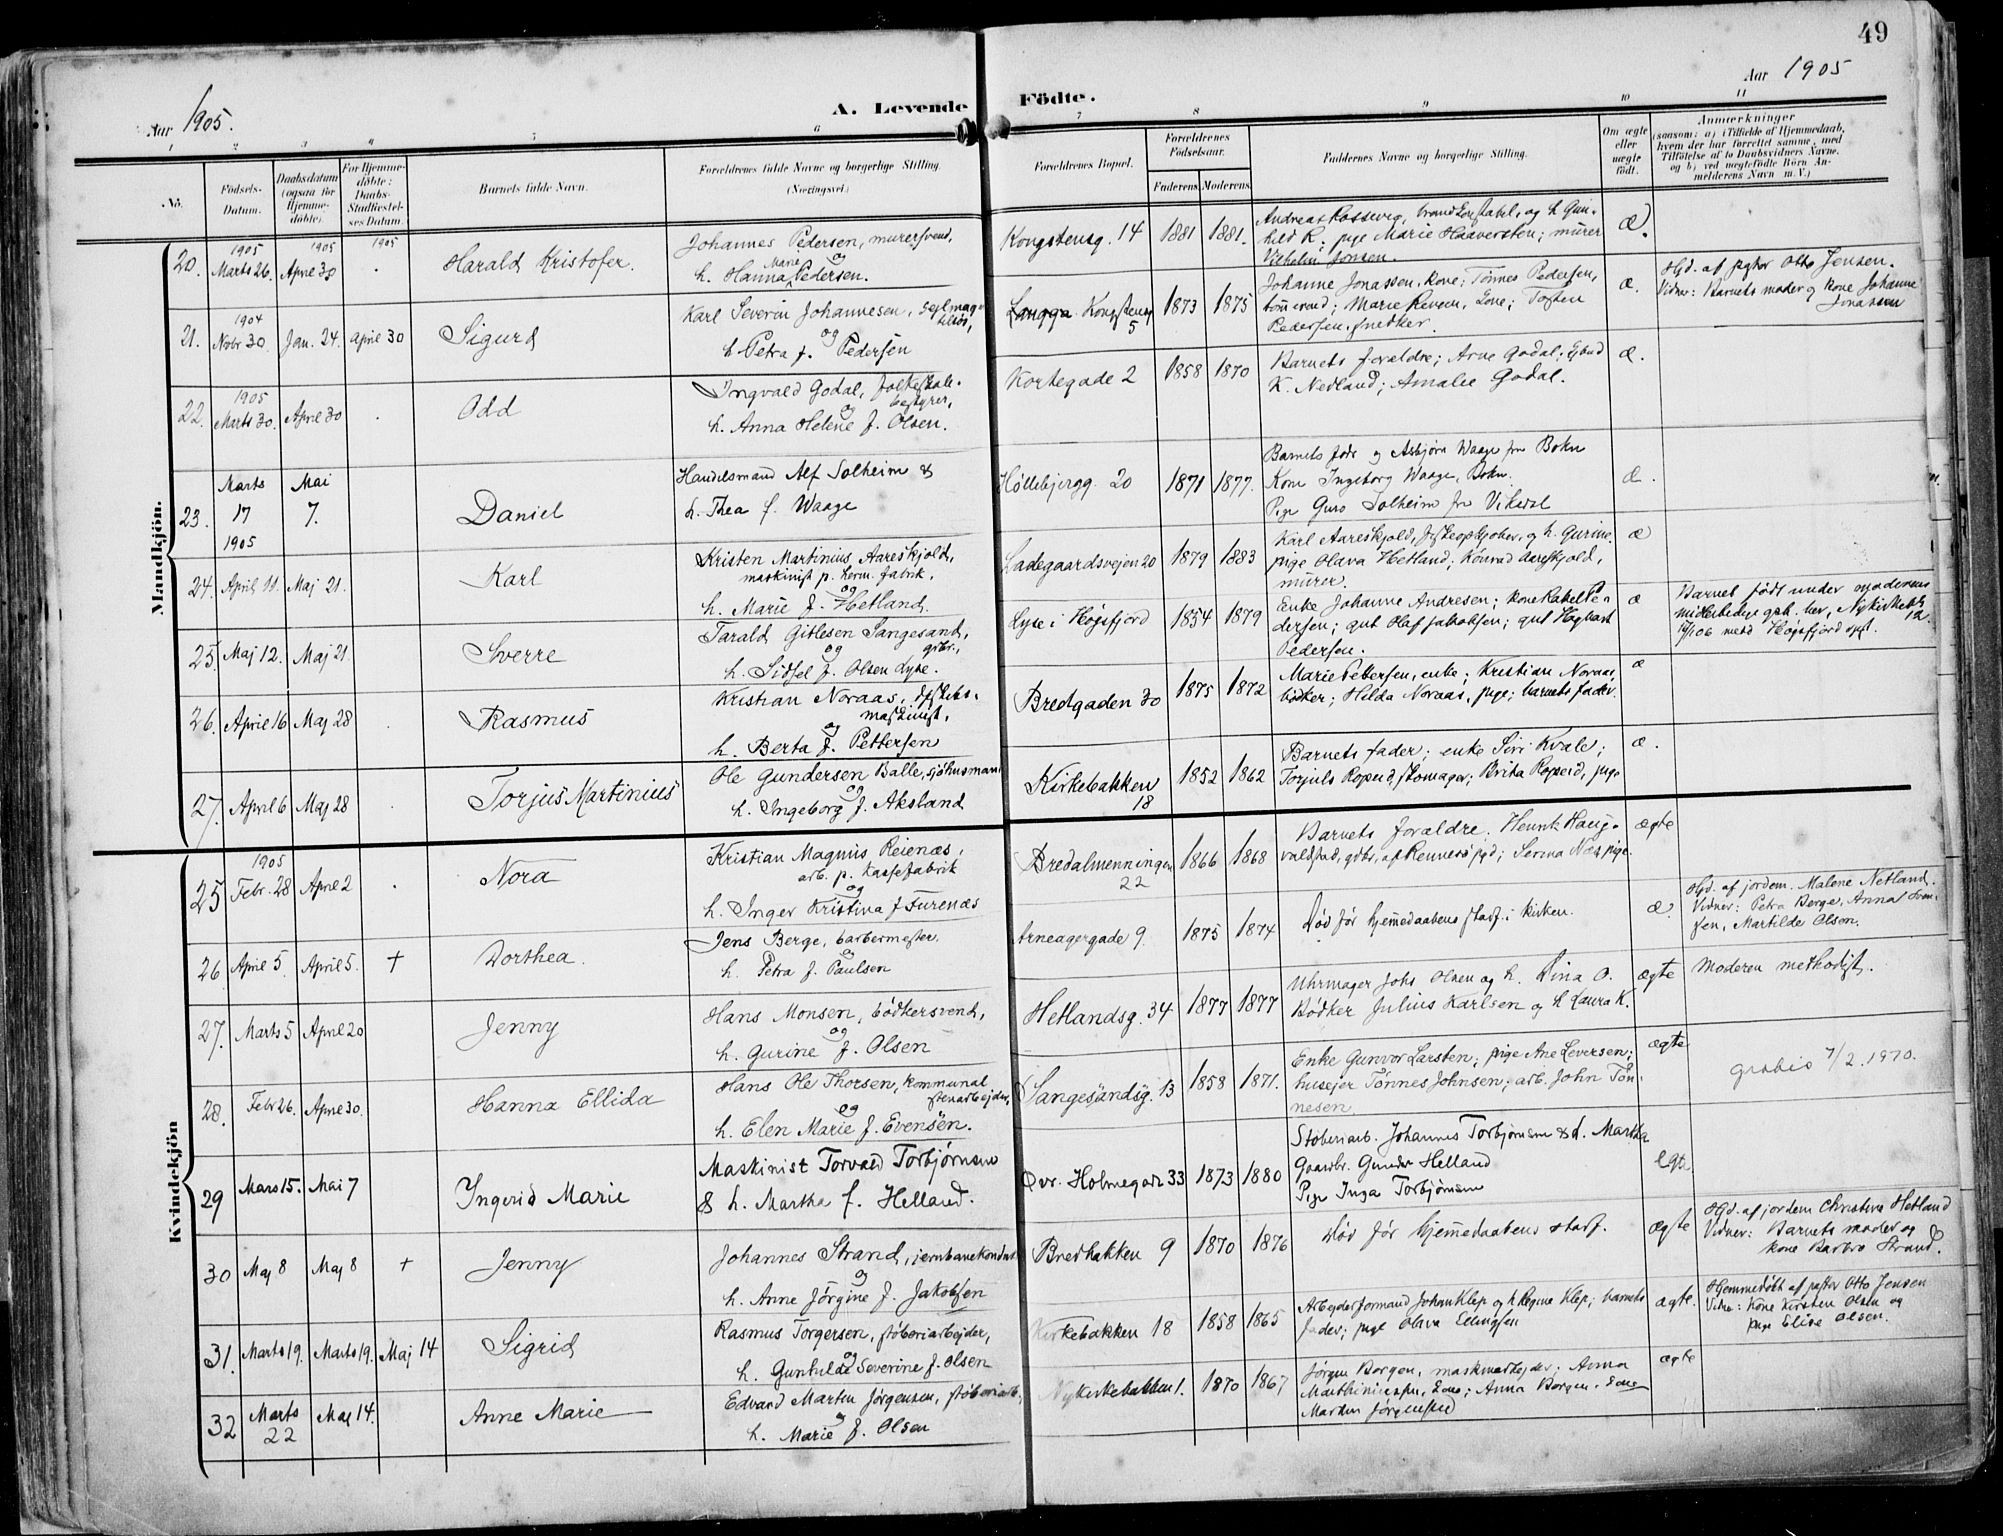 49
Aar 1905.
A. Levende Födte.
Aar 1905
1 2 3 4 5 6 7 8 9 10 11
No.
Födsels-Datum.
Daabsdatum (ogsaa for Hjemme-döbte).
For Hjemme-döbte: Daabs-Stadfæstel-ses Datum.
Barnets fulde Navn.
Forældrenes fulde Navne og borgerlige Stilling. (Næringsvei.)
Forældrenes Bopæl.
Forældrenes Födselsaar.
Faderens. Moderens.
Faddernes Navne og borgerlige Stilling.
Om ægte eller uægte födt.
Anmærkninger (saasom: a) i Tilfælde af Hjemmedaab, hvem der har forrettet samme, med Tilföielse af to Daabsvidners Navne, og b) ved uægtefödte Börn An-melderens Navn m. V.)
Mandkjön.
20. 1905 Marts 26. 1905 April 30 1905 Harald Kristofer.
Johannes Pedersen, murersvend,
og
h. Hanna Marie Pedersen.
Kongstensg. 14 1881 1881.
Andreas Rossevig, brandkonstabel, og h. Gun-
hild R; pige Marie Haaversten; murer
Vilhelm Jonsen.
æ.
21. 1904 Novbr 30. Jan. 24. April 30 Sigurd
Karl Severin Johannesen,
og
h. Petra f. Pedersen
Kongstensg 5 1873 1875
Johanne Jonassen, kone; Tønnes Pedersen,
Pedersen, snedker.
æ.
Hjd. af pastor Otto Jensen.
Vidner: Barnets moder og kone Johanne
Jonassen
22. 1905 Marts 30. April 30 Odd
Ingvald Godal, folkeskole-
bestyrer,
og
h. Anna Helene f. Olsen.
Kortegade 2 1858 1870
Barnets forældre; Arne Godal;
K. Nedland; Amalie Godal.
æ.
23. Marts 17 1905 Mai 7. Daniel
Handelsmand Alf Solheim &
h. Thea f. Waage
Høllebjergg. 20 1871 1877.
Barnets fader og Asbjørn Waage fra Bokn
Kone Ingeborg Waage, Bokn.
Pige Guro Solheim fra Vikedal
æ.
24. April 11. Maj 21. Karl
Kristen Martinius Aareskjold,
maskinist p. herm. fabrik,
og
h. Marie f. Hetland.
Ladegaardsvejen 20 1879 1883
Karl Aareskjold, og h. Gurine,
pige Olava Hetland; Konrad Aareskjold,
murer.
æ
25. Maj 12. Maj 21. Sverre
Tarald Gitlesen Sangesand,
gdbr.,
og
h. Sidsel f. Olsen Lyse.
Lyse i Høgsfjord 1854 1879
Enke Johanne Andresen; kone Pe-
dersen; gut Olaf Jakobsen; gut Hagbart
Pedersen.
æ
Barnet født under moderens
midlertidige oph. her, Nykirkebk 12.
26. April 16 Maj 28 Rasmus
Kristian Noraas,
maskinist,
og
h. Berta f. Pettersen
Bredgaden 30 1875 1872
Marie Pettersen, enke; Kristian Noraas,
Hilda Noraas, pige; barnets fader.
æ
27. April 6 Maj 28 Torjus Martinius
Ole Gundersen Balle, sjøhusmand
og
h. Ingeborg f. Aksland
Kirkebakken 18 1852 1862
Barnets fader; enke Siri Kvale;
Torjuls Ropeid, skomager; Brita Ropeid, pige
æ.
Kvindekjön
25 1905 Febr. 28 April 2 Nora
Kristian Magnus Reienæs,
arb. p. kassefabrik
og
h. Inger Kristina f. Furenæs
Bredalmenningen 22 1866 1868
Barnets forældre. Henrik Haug-
valdstad, gdbr. af Rennesø pgd; Serina Næs, pige.
ægte
26 April 5. April 5. + Dorthea.
Jens Berge, barbermester.
og
h. Petra f. Paulsen
Arneagergade 9. 1875 1874
Død før hjemmedaabens stadf. i kirken.
æ.
Hjd. af jordem. Malene Netland.
Vidner: Petra Berge, Anna Sven-
sen, Martilde Olsen.
27. Marts 5 April 20 Jenny
Hans Monsen, bødkersvend,
og
h. Gurine f. Olsen
Hetlandsg. 34 1877 1877
Uhrmager Johs Olsen og h. Lina O.
Bødker Julius Karlsen og h Laura K.
ægte
Moderen methodist.
28. Febr 26. April 30. Hanna Ellida
Hans Ole Thorsen, kommunal
stenarbejder,
og
h. Elen Marie f. Evensen.
Sangesandsg. 13 1858 1871.
Enke Gunvor Larsen; pige Ane Leversen;
husejer Tønnes Johnsen; arb. John Tøn-
nesen
ægte
gratis 7/2. 1970.
29 Mars 15. Mai 7 Ingerid Marie
Maskinist Torvald Torbjørnsen
& h. Martha f. Helland.
Øvr. Holmegade 33 1873 1880
Støberiarb. Johannes Torbjørnsen & h. Martha
Gaardbr. Gunder Helland
Pige Inga Torbjørnsen
egte
30 Maj 8 Maj 8 + Jenny
Johannes Strand, jernbanekonduk
og
h. Anne Jörgine f. Jakobsen
Bredbakken 9 1870 1876
Død før hjemmedaabens stadf.
ægte
Hjd. af jordem Christine Hetland
Vidner: Barnets moder og
kone Barbro Strand.
31. Marts 19. Marts 19. Maj 14 Sigrid
Rasmus Torgersen, støberiarbejder,
og
h. Gunhild Severine f. Olsen
Kirkebakken 18 1858 1865
Arbejdsformand Johan Klep og h Regine Klep; barnets
fader; pige Olava
ægte.
Hjemmedøbt af pastor Otto Jensen
Vidner: Kone Kirsten Olsen og
pige Elise Olsen.
32 Marts 22 Maj 14. Anne Marie
Edvard Martin Jørgensen, støberiarb.,
og
h. Marie f. Olsen
Nykirkebakken 1. 1870 1867
Jørgen Borgen, maskinarbejder; Anna
Marthiniussen, kone; Anna Borgen, kone
Martin Jørgensen
ægte